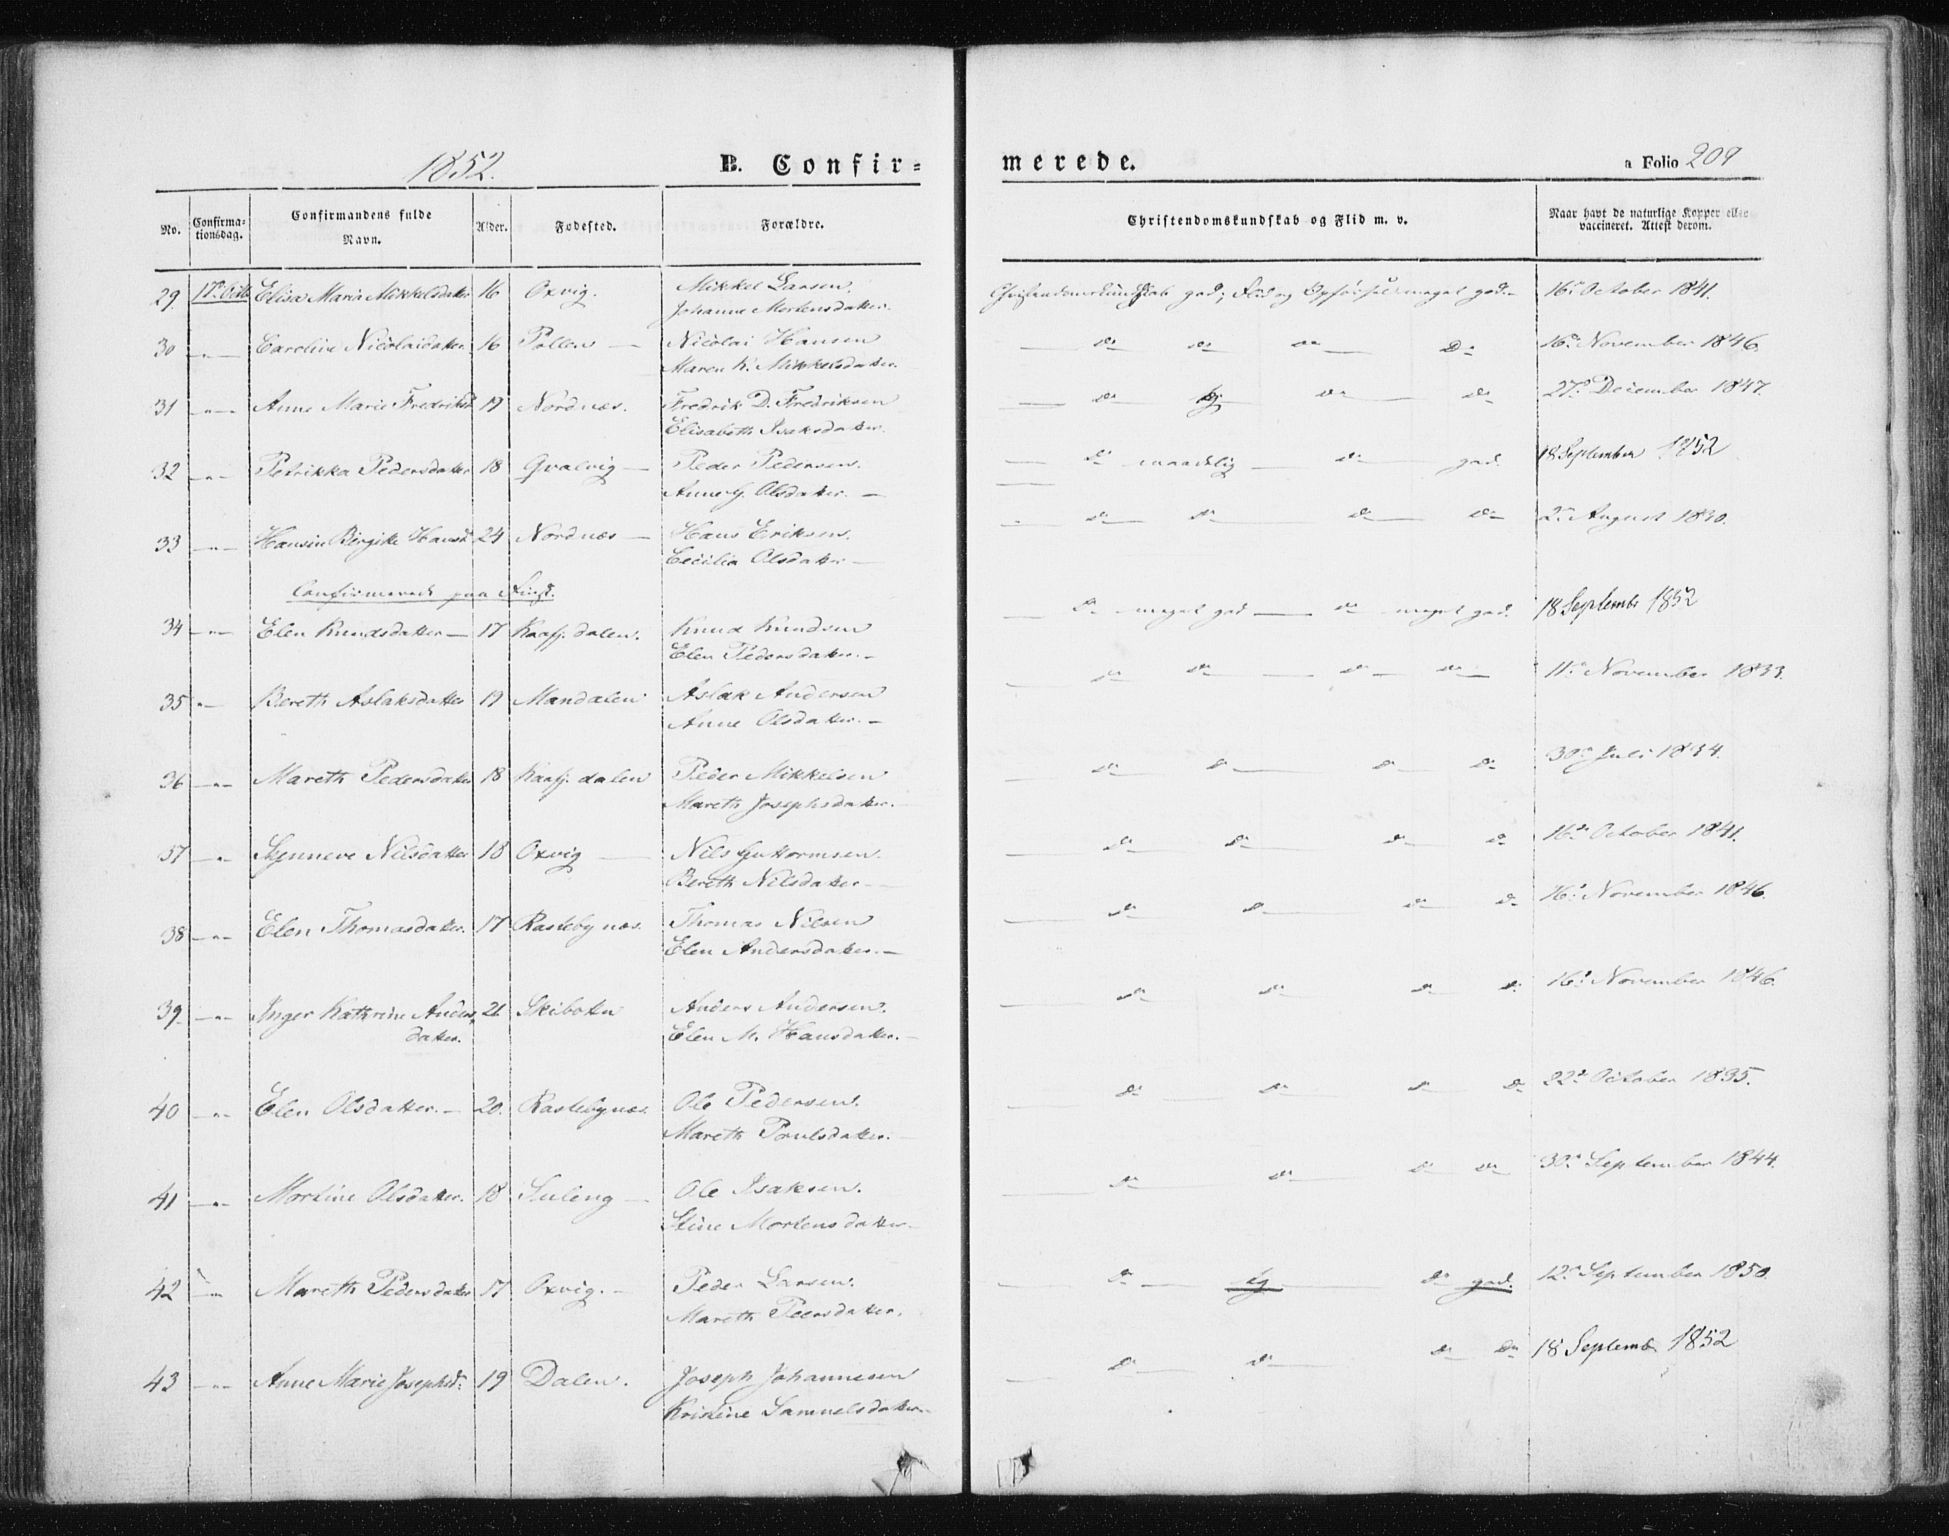 1852.
B. Confir=
merede.
a Folio 209
No.
Confirma-
tionsdag.
Confirmandens fulde
Navn.
Alder.
Fødested.
Forældre.
Christendomskundskab og Flid m. v.
Naar havt de naturlige Kopper eller
vaccineret. Attest derom.
29. 17de Octb Elisa Maria Mikkelsdatter 16 Oxvig. Mikkel Larsen. Christendomskundskab god, Flid og Opførsel meget god. 16de October 1841.
Johanne Mortensdatter.
30 -"- Caroline Nicolaidatter 16 Pollen — Nicolai Hansen — do do do do 16de November 1846.
Maren K. Mikkelsdatter.
31 -"- Anne Marie Fredriksd 19 Nordnæs. Fredrik D. Fredriksen — do do do 27de December 1847.
Elisabeth Isaksdatter.
32 -"- Petrikka Pedersdatter 18 Qvalvig — Peder Pedersen. — do maadelig — do god. 18 September 1852
Anne G. Olsdatter. —
33 -"- Hansin Birgitte Hansd 24 Nordnæs — Hans Eriksen. — do do do do 2den August 1830.
Cecilia Olsdatter —
Confirmerede paa Finsk.
34 -"- Elen Knudsdatter — 17 Kaafj. dalen. Knud Knudsen — do meget god — do meget god. 18 Septembr 1852
Elen Pedersdatter. —
35 -"- Bereth Aslaksdatter 19 Mandalen Aslak Andersen — do do do do 11te November 1833.
Anne Olsdatter. —
36 -"- Mareth Pedersdatter 18 Kaafj. dalen Peder Mikkelsen — do do do do 30de Juli 1834.
Mareth Josephsdatter. —
37 -"- Synneve Nilsdatter 18 Oxvig — Nils Guttormsen. — do do do do 16de October 1841.
Bereth Nilsdatter —
38 -"- Elen Thomasdatter. 17 Rastebynæs. Thomas Nilsen — do do do do 16de November 1846.
Elen Andersdatter. —
39. -"- Inger Kathrine Anders 21 Skibotn Anders Andersen. — do do do do 16de November 1846.
datter. Elen M. Hansdatter. —
40 -"- Elen Olsdatter. — 20. Rastebynæs. Ole Pedersen. — do do do do 22de October 1835.
Mareth Poulsdatter. —
41 -"- Mortine Olsdatter. 18 Suleng — Ole Isaksen. — do do do do 30de September 1844.
Stine Mortensdatter —
42 -"- Mareth Pedersdatter 17 Oxvig. — Peder Larsen. — do — do god. 12te September 1850.
Mareth Peersdatter.
43 -"- Anne Marie Josephsd. 19 Dalen. Joseph Johannesen — do do do do 18 Septemb 1852
Kristine Samuelsdatter. —